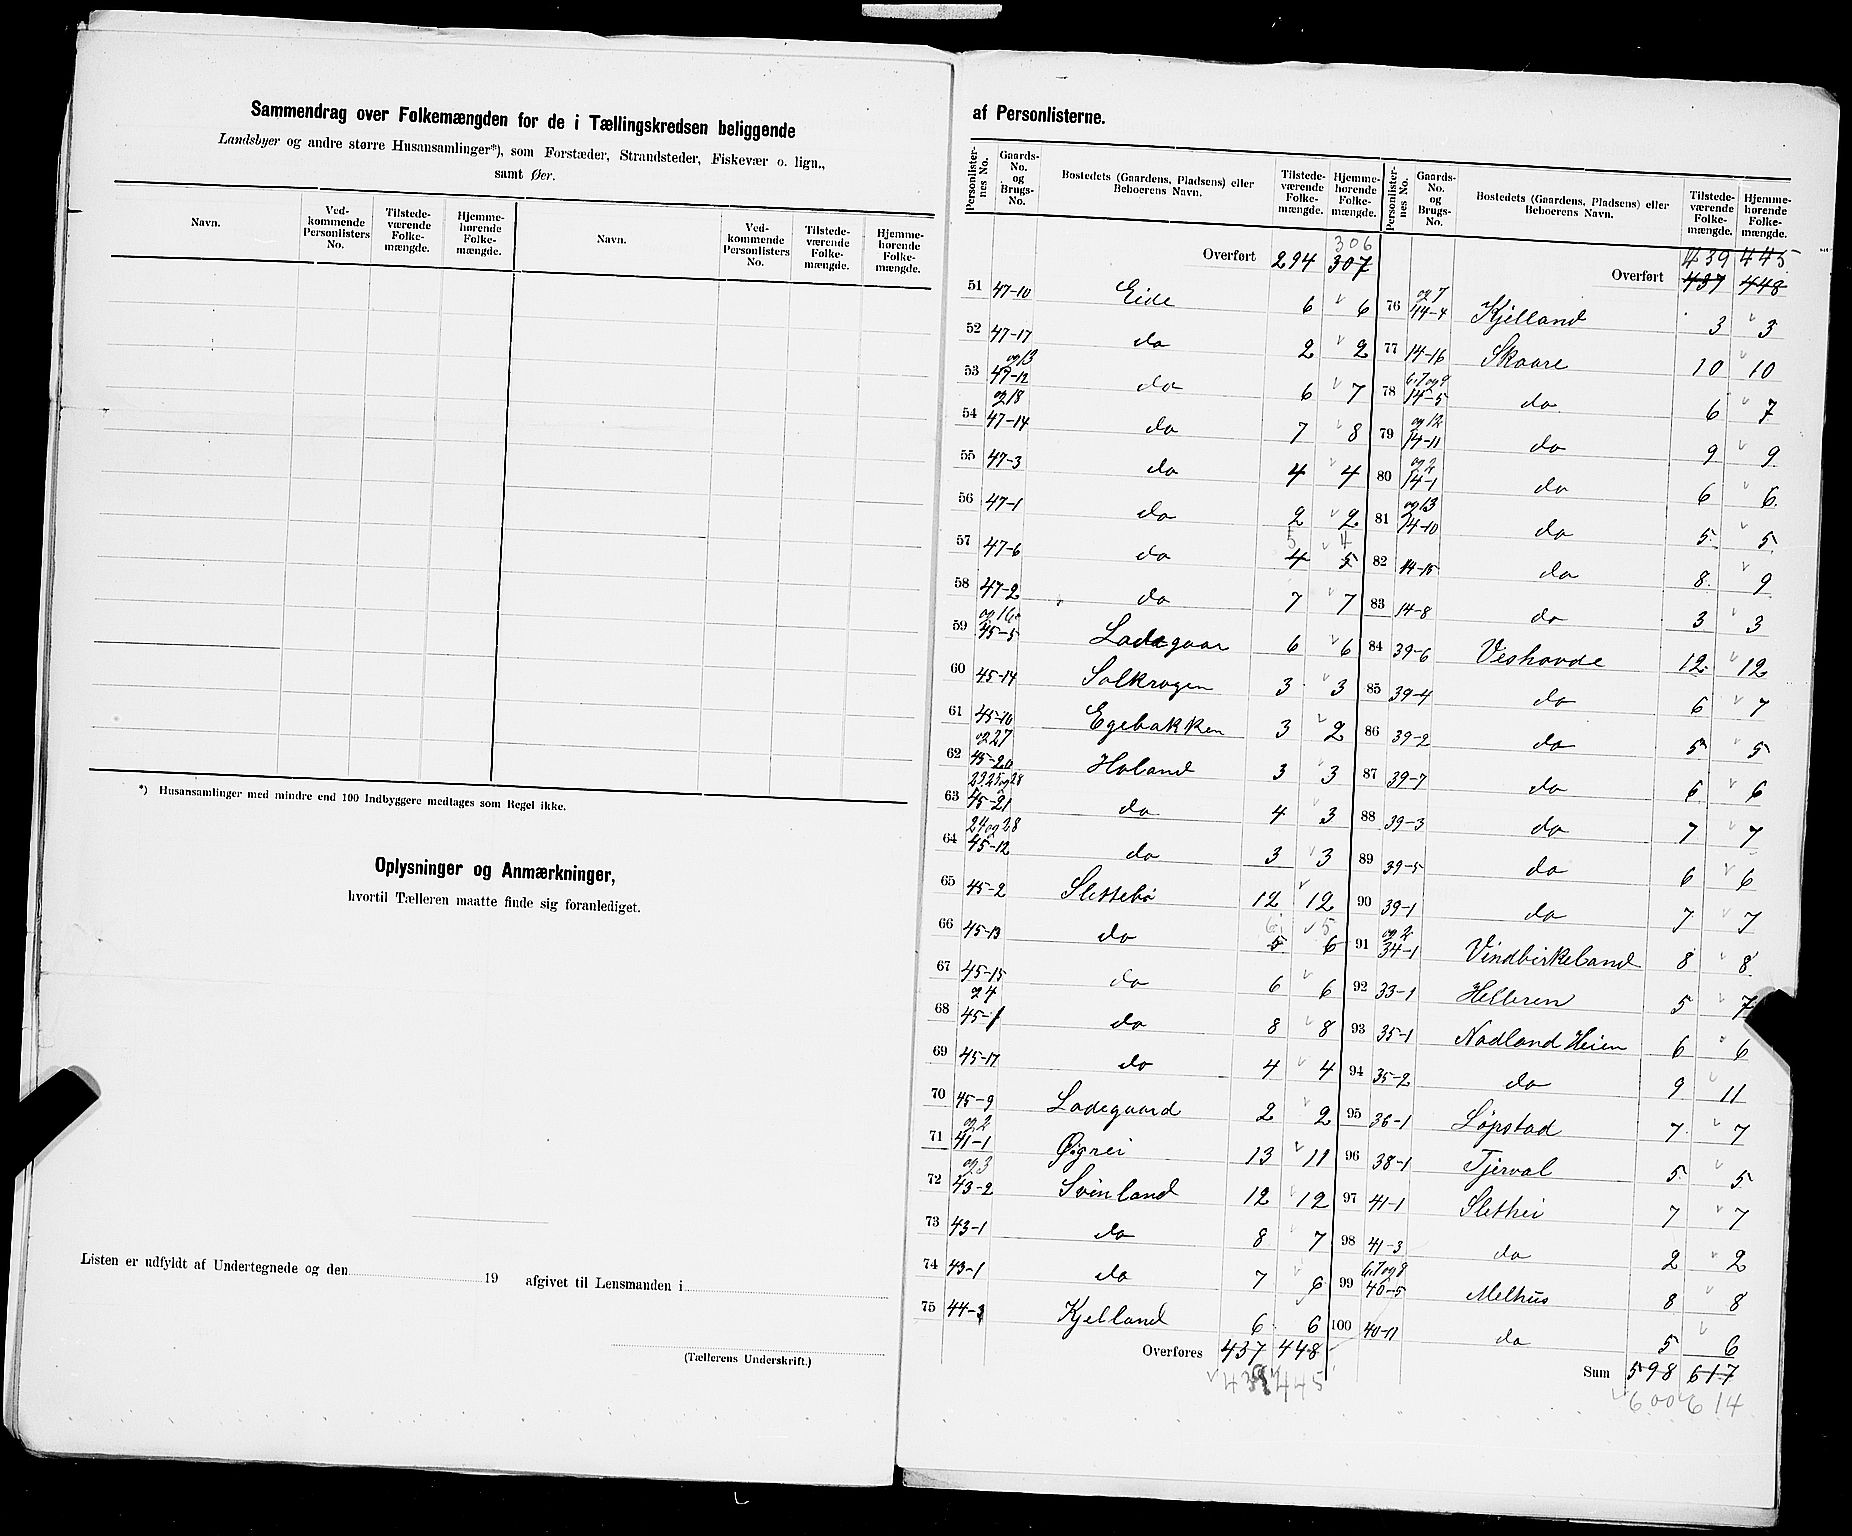 Sammendrag over Folkemængden for de i Tællingskredsen beliggende
Landsbyer og andre større Husansamlinger*), som Forstæder, Strandsteder, Fiskevær o. lign.,
samt Øer.
Navn. Ved-kommende Personlisters No. Tilstede-værende Folke-mængde. Hjemme-hørende Folke-mængde. Navn. Ved-kommende Personlisters No. Tilstede-værende Folke-mængde. Hjemme-hørende Folke-mængde.
*) Husansamlinger med mindre end 100 Indbyggere medtages som Regel ikke.
Oplysninger og Anmærkninger,
hvortil Tælleren maatte finde sig foranlediget.
Listen er udfyldt af Undertegnede og den 19 afgivet til Lensmanden i
(Tællerens Underskrift.)
af Personlisterne.
Personlister-nes No. Gaards-No. og Brugs-No. Bostedets (Gaardens, Pladsens) eller Beboerens Navn. Tilstede-værende Folke-mængde. Hjemme-hørende Folke-mængde.
306
Overført 294 307
51 47-10 Eide 6 6
52 47-17 do 2 2
og 13
53 47-12 do 6 7
og 18
54 47-14 do 7 8
55 47-3 do 4 4
56 47-1 do 2 2
5 4
57 47-6 do 4 5
58 47-2 do 7 7
og 16
59 45-5 Ladegaar 6 6
60 45-14 Solkrogen 3 3
61 45-10 Egebakken 3 2
og 27
62 45-20 Holand 3 3
23.25 og 28
63 45-21 do 4 3
24 og 28
64 45-12 do 3 3
65 45-2 Slettebø 12 12
6 5
66 45-13 do 5 6
67 45-15 do 6 6
og 4
68 45-1 do 8 8
69 45-17 do 4 4
70 45-9 Ladegaard 2 2
og 2
71 41-1 Øigrei 13 11
og 3
72 43-2 Svinland 12 12
73 43-1 do 8 7
74 43-1 do 7 6
75 44-3 Kjelland 6 6
Overføres 437 448
439 445
Personlister-nes No. Gaards-No. og Brugs-No. Bostedets (Gaardens, Pladsens) eller Beboerens Navn. Tilstede-værende Folke-mængde. Hjemme-hørende Folke-mængde.
439 445
Overført 437 448
og 7
76 44-4 Kjelland 3 3
77 14-16 Skaare 10 10
6.7 og 9
78 14-5 do 6 7
og 12
79 14-11 do 9 9
og 2
80 14-1 do 6 6
og 13
81 14-10 do 5 5
82 14-15 do 8 9
83 14-8 do 3 3
84 39-6 Veshovde 12 12
85 39-4 do 6 7
86 39-2 do 5 5
87 39-7 do 6 6
88 39-3 do 7 7
89 39-5 do 6 6
90 39-1 do 7 7
og 2
91 34-1 Vindbirkeland 8 8
92 33-1 Helleren 5 7
93 35-1 Nodland Heien 6 6
94 35-2 do 9 11
95 36-1 Løpstad 7 7
96 38-1 Tjerval 5 5
97 41-1 Slethei 7 7
98 41-3 do 2 2
6.7 og 8
99 40-5 Melhus 8 8
100 40-11 do 5 6
Sum 598 617
600 614